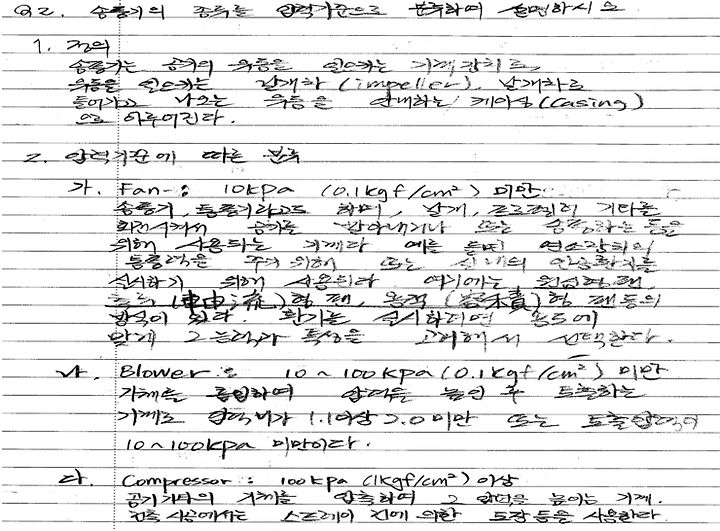 Q2. 송풍기의 종류를 압력기준으로 분류하여 설명하시오
1. 정의
송풍기는 공기의 유동을 일으키는 기계장치로
유동을 일으키는 날개차(impeller), 날개차로
들어가고 나오는 유동을 안내하는 케이싱(casing)
으로 이루어진다.
2. 압력기준에 따른 분류
가. Fan : 10kpa (0.1kgf/cm²) 미만
송풍기, 통풍기라고도 하며, 날개, 프로펠러 기타를
회전시켜서 공기를 밀어내거나 또는 송풍하는 등을
위해 사용되는 기계다 예를 들면 연소장치의
통풍력을 주기 위해 또는 실내의 환기를
실시하기 위해 사용된다 여기에는 원심형 팬,
축류(軸流)형 팬, 용적(容積)형 팬 등의
방식이 있다. 환기를 실시하려면 용도에
맞게 그 능력과 특성을 고려해서 선택한다.
나. Blower : 10~100kpa (0.1kgf/cm²) 미만
기체를 흡입하여 압력을 높인 후 토출하는
기계로 압력비가 1.1이상 2.0미만 또는 토출압력이
10~100kpa 미만이다.
다. Compressor : 100kpa (1kgf/cm²) 이상
공기 기타의 기체를 압축하여 그 압력을 높이는 기계.
건축 시공에서는 스프레이 건에 의한 도장 등을 사용한다